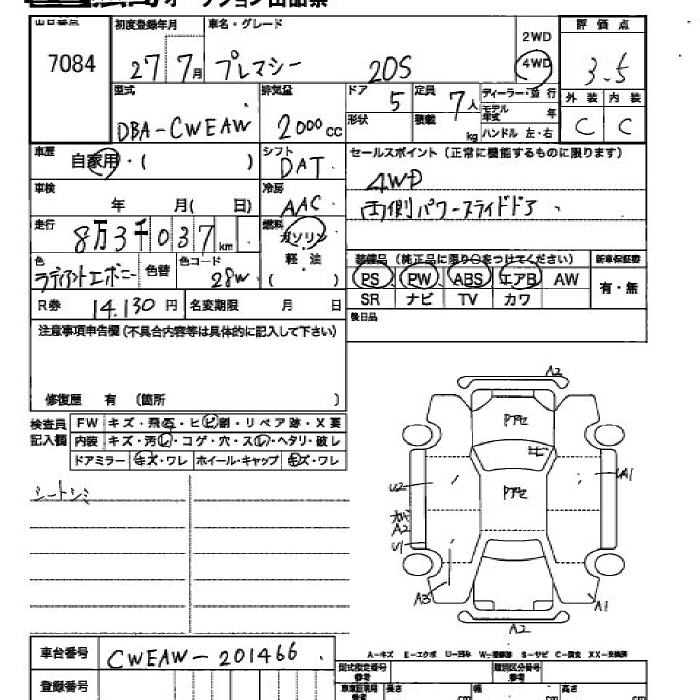 オークション出品票
出品番号 初度登録年月 車名・グレード 2WD 評価点
7084 27 7月 プレマシー 20S 4WD 3.5
型式 排気量 ドア 5 定員 7人 ディーラー・並行 外装 内装
DBA-CWEAW 2000cc 形状 積載 kg モデル年式 年 C C
ハンドル 左・右
車歴 自家用・( ) シフト DAT セールスポイント(正常に機能するものに限ります)
車検 年 月( 日) 冷房 AAC 4WD
両側パワースライドドア
走行 8万3千037km 燃料 ガソリン
軽・油
( )
装備品(純正品に限り○をつけてください) 新車保証書
色 ラディアントエボニー 色替 色コード 28W PS PW ABS エアB AW 有・無
R券 14,130円 名変期限 月 日 SR ナビ TV カワ
注意事項申告欄(不具合内容等は具体的に記入して下さい) 後日品
修復歴 有 (箇所 )
検査員記入欄 FW キズ・飛石・ヒビ割・リペア跡・X要
内装 キズ・汚レ・コゲ・穴・スレ・ヘタリ・破レ
ドアミラー キズ・ワレ ホイール・キャップ キズ・ワレ
シートシミ
A2
Pアセ
キ
Pアセ
U2
UA1
A2
U1
A3
A1
A2
車台番号 CWEAW-201466
A-キズ E-エクボ U-凹み W-補修跡 S-サビ C-腐食 XX-交換済
登録番号 型式指定番号 参考 類別区分番号 参考
車庫証明用 参考 長さ cm 幅 cm 高さ cm